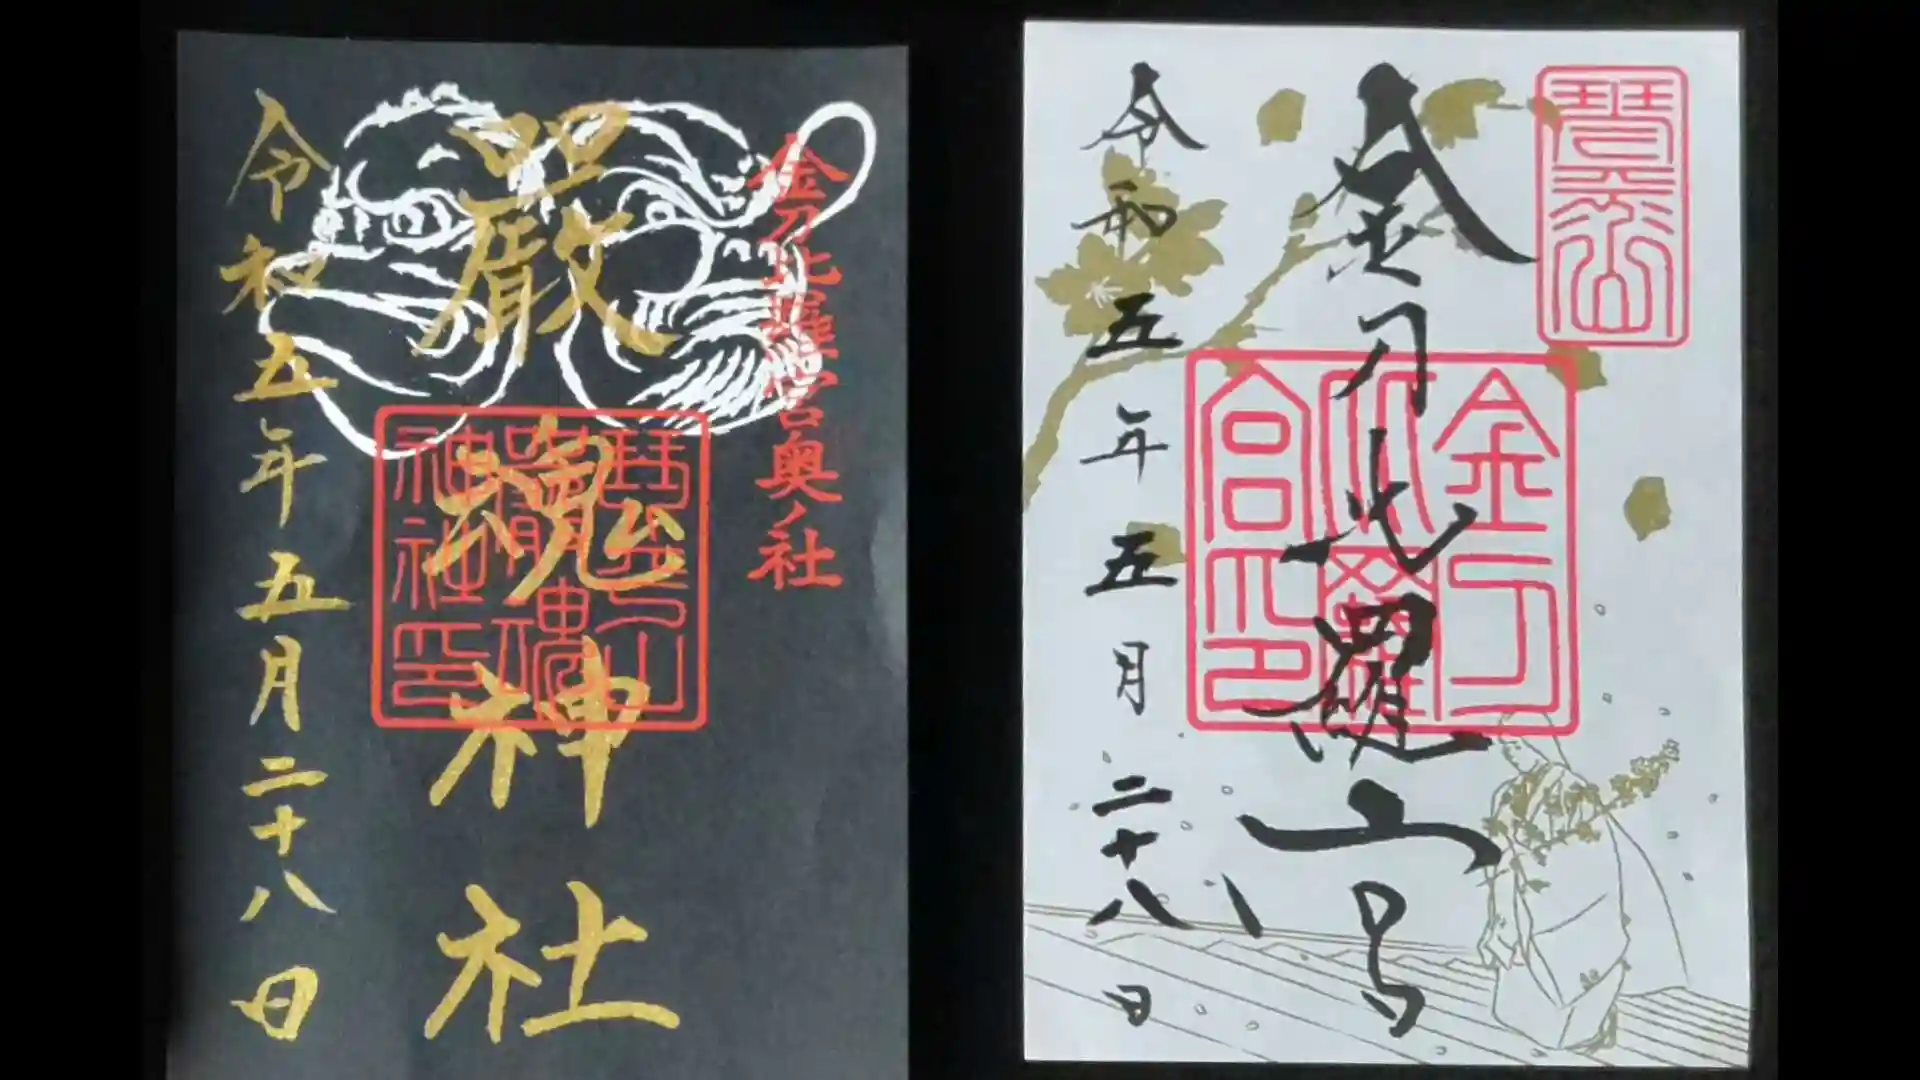 金刀比羅宮奥ノ社
嚴魂神社
琴平山
嚴魂
神社印
令和五年五月二十八日
琴平山
金刀比羅宮
金刀
比羅
宮印
令和五年五月二十八日